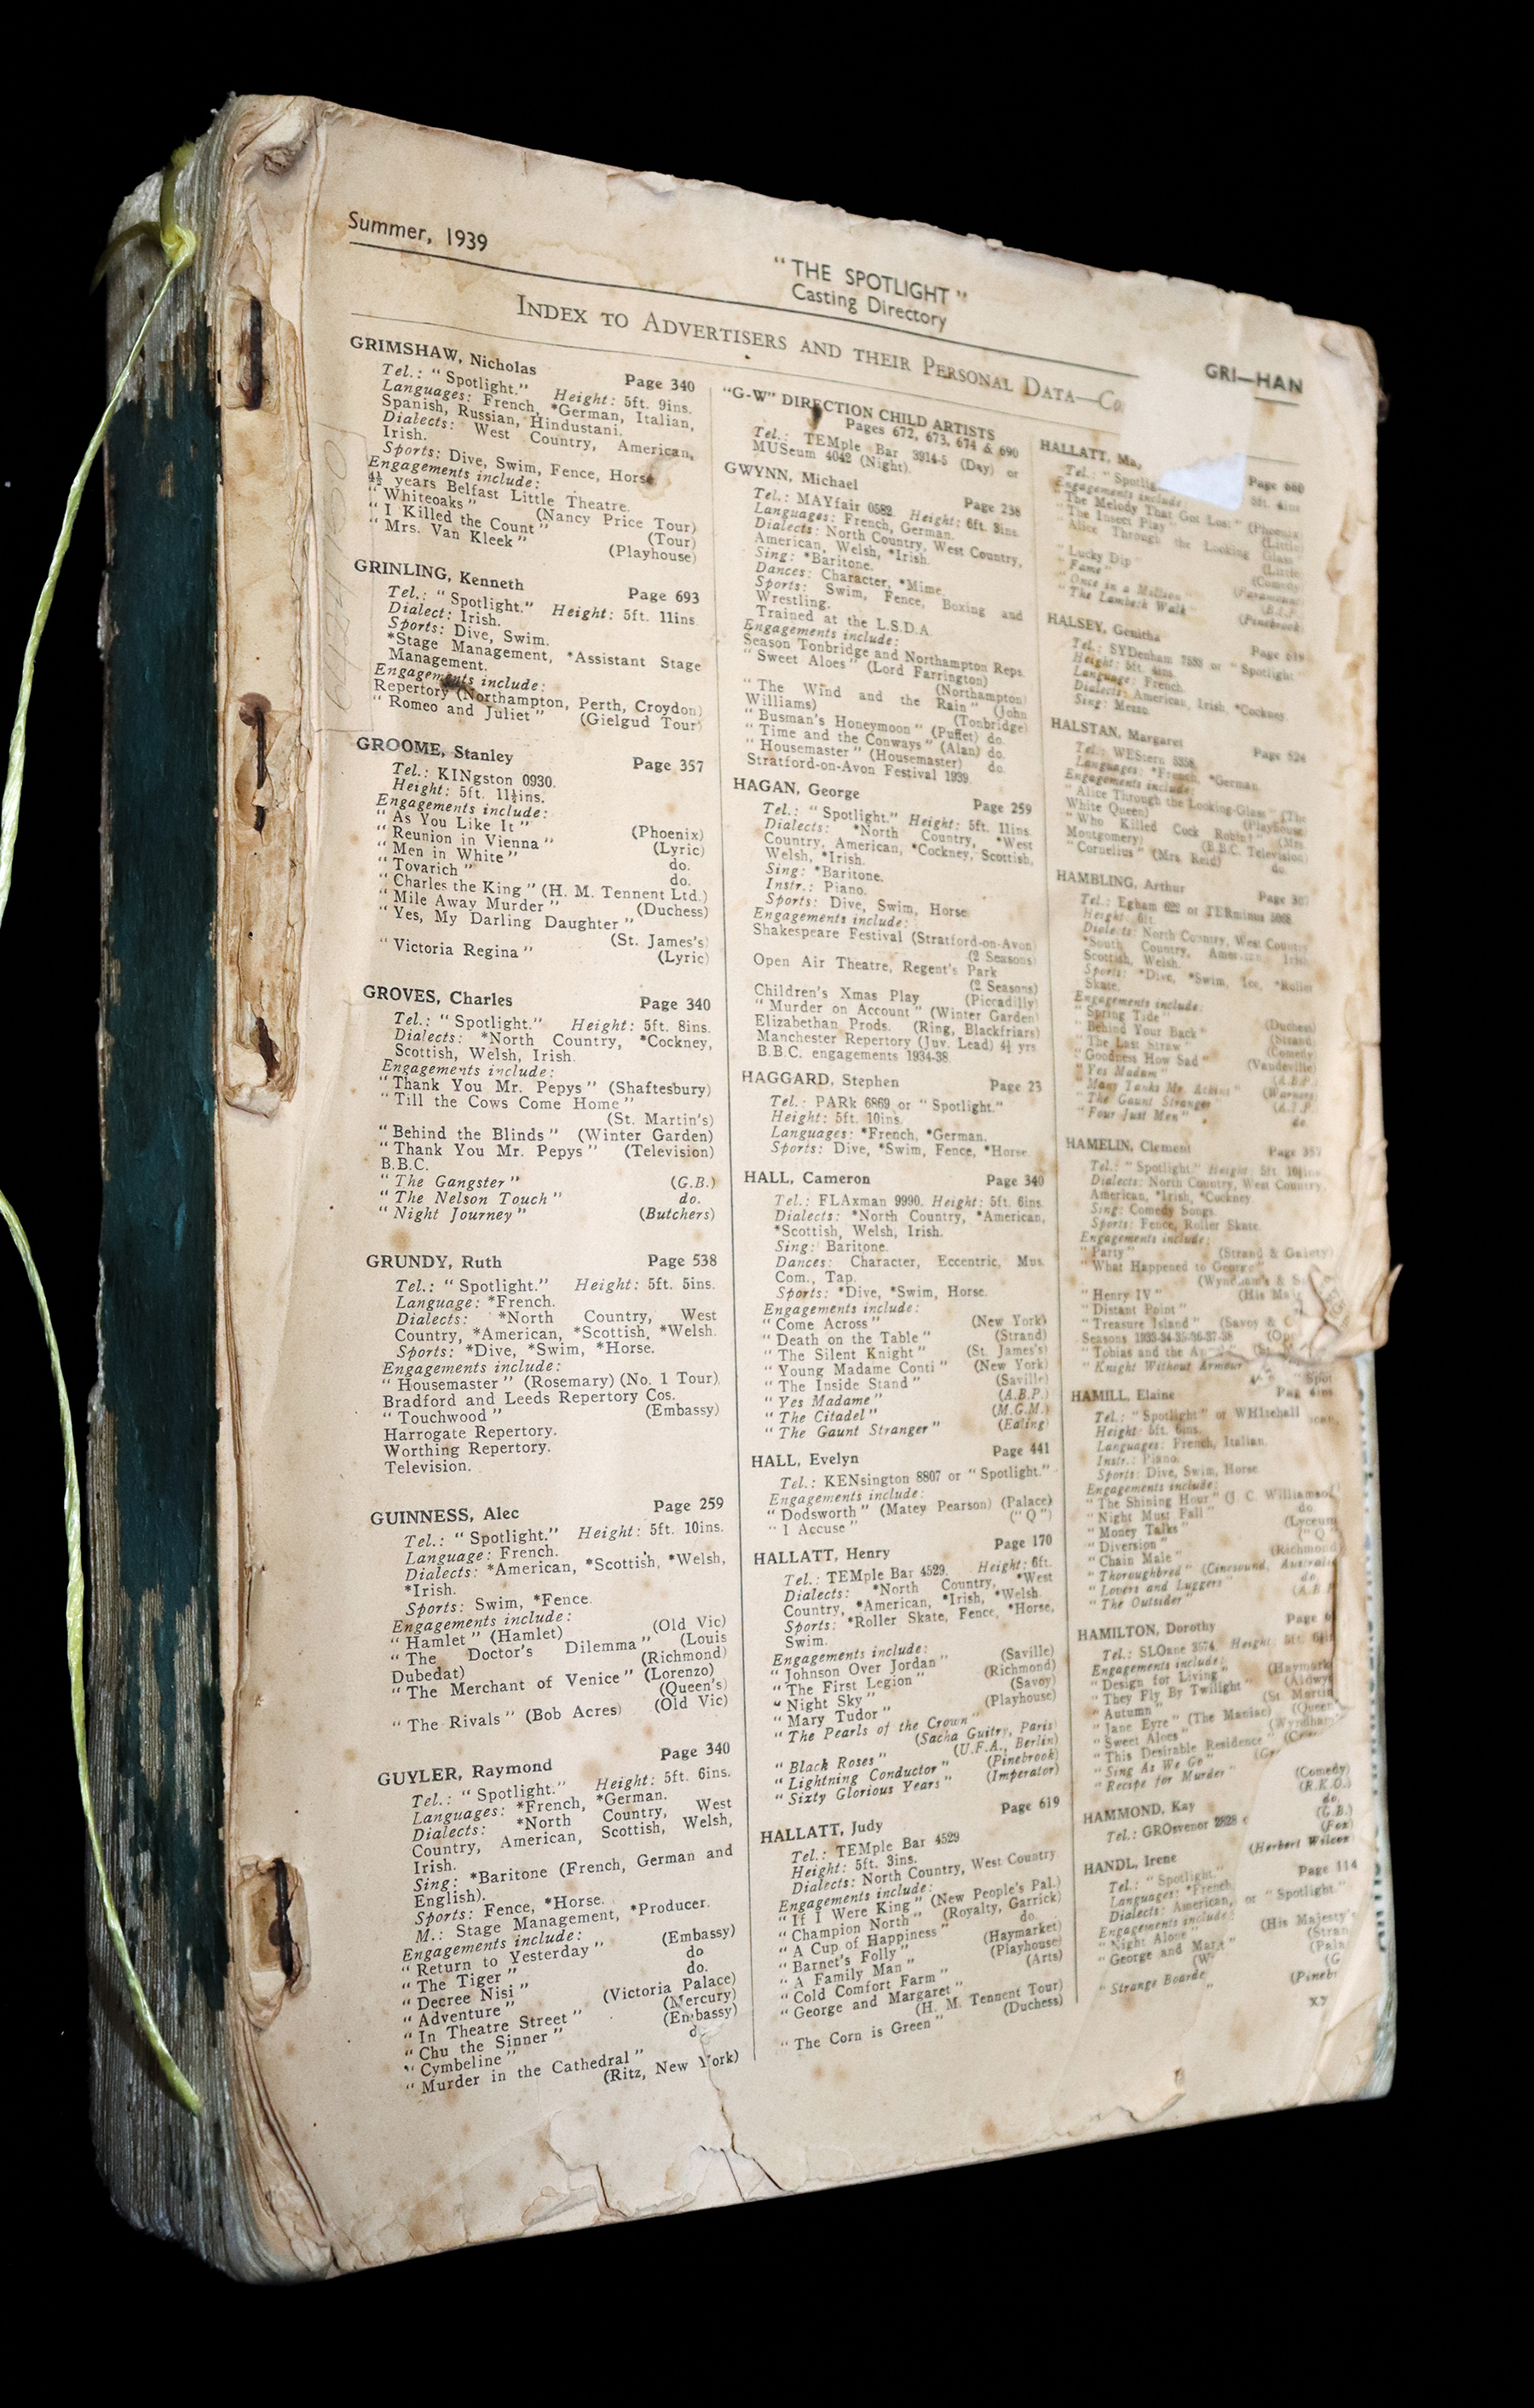 Summer, 1939
"THE SPOTLIGHT"
Casting Directory
GRI—HAN
INDEX TO ADVERTISERS AND THEIR PERSONAL DATA—Co
GRIMSHAW, Nicholas
Page 340
Tel.: "Spotlight." Height: 5ft. 9ins.
Languages: French, *German, Italian,
Spanish, Russian, Hindustani.
Dialects: West Country, American,
Irish.
Sports: Dive, Swim, Fence, Horse
Engagements include:
4½ years Belfast Little Theatre.
"Whiteoaks" (Nancy Price Tour)
"I Killed the Count" (Tour)
"Mrs. Van Kleek" (Playhouse)
GRINLING, Kenneth
Page 693
Tel.: "Spotlight." Height: 5ft. 11ins.
Dialect: Irish.
Sports: Dive, Swim.
*Stage Management, *Assistant Stage
Management.
Engagements include:
Repertory (Northampton, Perth, Croydon)
"Romeo and Juliet" (Gielgud Tour)
GROOME, Stanley
Page 357
Tel.: KINgston 0930.
Height: 5ft. 11½ins.
Engagements include:
"As You Like It" (Phoenix)
"Reunion in Vienna" (Lyric)
"Men in White" do.
"Tovarich" do.
"Charles the King" (H. M. Tennent Ltd.)
"Mile Away Murder" (Duchess)
"Yes, My Darling Daughter"
(St. James's)
"Victoria Regina" (Lyric)
GROVES, Charles
Page 340
Tel.: "Spotlight." Height: 5ft. 8ins.
Dialects: *North Country, *Cockney,
Scottish, Welsh, Irish.
Engagements include:
"Thank You Mr. Pepys" (Shaftesbury)
"Till the Cows Come Home"
(St. Martin's)
"Behind the Blinds" (Winter Garden)
"Thank You Mr. Pepys" (Television)
B.B.C.
"The Gangster" (G.B.)
"The Nelson Touch" do.
"Night Journey" (Butchers)
GRUNDY, Ruth
Page 538
Tel.: "Spotlight." Height: 5ft. 5ins.
Language: *French.
Dialects: *North Country, West
Country, *American, *Scottish, *Welsh.
Sports: *Dive, *Swim, *Horse.
Engagements include:
"Housemaster" (Rosemary) (No. 1 Tour)
Bradford and Leeds Repertory Cos.
"Touchwood" (Embassy)
Harrogate Repertory.
Worthing Repertory.
Television.
GUINNESS, Alec
Page 259
Tel.: "Spotlight." Height: 5ft. 10ins.
Language: French.
Dialects: *American, *Scottish, *Welsh,
*Irish.
Sports: Swim, *Fence.
Engagements include:
"Hamlet" (Hamlet) (Old Vic)
"The Doctor's Dilemma" (Louis
Dubedat) (Richmond)
"The Merchant of Venice" (Lorenzo)
(Queen's)
"The Rivals" (Bob Acres) (Old Vic)
GUYLER, Raymond
Page 340
Tel.: "Spotlight." Height: 5ft. 6ins.
Languages: *French, *German.
Dialects: *North Country, West
Country, American, Scottish, Welsh,
Irish.
Sing: *Baritone (French, German and
English).
Sports: Fence, *Horse.
M.: Stage Management, *Producer.
Engagements include:
"Return to Yesterday" (Embassy)
"The Tiger" do
"Decree Nisi" do.
"Adventure" (Victoria Palace)
"In Theatre Street" (Mercury)
"Chu the Sinner" (Embassy)
"Cymbeline"
"Murder in the Cathedral"
(Ritz, New York)
"G-W" DIRECTION CHILD ARTISTS
Pages 672, 673, 674 & 690
Tel.: TEMple Bar 3914-5 (Day) or
MUSeum 4042 (Night).
GWYNN, Michael
Page 238
Tel.: MAYfair 0582 Height: 6ft. 3ins.
Languages: French, German.
Dialects: North Country, West Country,
American, Welsh, *Irish.
Sing: *Baritone.
Dances: Character, *Mime.
Sports: Swim, Fence, Boxing and
Wrestling.
Trained at the L.S.D.A.
Engagements include:
Season Tonbridge and Northampton Reps.
"Sweet Aloes" (Lord Farrington)
(Northampton)
"The Wind and the Rain" (John
Williams) (Tonbridge)
"Busman's Honeymoon" (Puffet) do.
"Time and the Conways" (Alan) do.
"Housemaster" (Housemaster) do.
Stratford-on-Avon Festival 1939.
HAGAN, George
Page 259
Tel.: "Spotlight." Height: 5ft. 11ins.
Dialects: *North Country, *West
Country, American, *Cockney, Scottish,
Welsh, *Irish.
Sing: *Baritone.
Instr.: Piano.
Sports: Dive, Swim, Horse
Engagements include:
Shakespeare Festival (Stratford-on-Avon)
(2 Seasons)
Open Air Theatre, Regent's Park
(2 Seasons)
Children's Xmas Play (Piccadilly)
"Murder on Account" (Winter Garden)
Elizabethan Prods. (Ring, Blackfriars)
Manchester Repertory (Juv. Lead) 4½ yrs.
B.B.C. engagements 1934-38.
HAGGARD, Stephen
Page 23
Tel.: PARk 6869 or "Spotlight."
Height: 5ft. 10ins.
Languages: *French, *German.
Sports: Dive, *Swim, Fence, *Horse
HALL, Cameron
Page 340
Tel.: FLAxman 9990. Height: 5ft. 6ins.
Dialects: *North Country, *American,
*Scottish, Welsh, Irish.
Sing: Baritone.
Dances: Character, Eccentric, Mus.
Com., Tap.
Sports: *Dive, *Swim, Horse.
Engagements include:
"Come Across" (New York)
"Death on the Table" (Strand)
"The Silent Knight" (St. James's)
"Young Madame Conti" (New York)
"The Inside Stand" (Saville)
"Yes Madame" (A.B.P.)
"The Citadel" (M.G.M.)
"The Gaunt Stranger" (Ealing)
HALL, Evelyn
Page 441
Tel.: KENsington 8807 or "Spotlight."
Engagements include:
"Dodsworth" (Matey Pearson) (Palace)
"I Accuse" ("Q")
HALLATT, Henry
Page 170
Tel.: TEMple Bar 4529. Height: 6ft.
Dialects: *North Country, *West
Country, *American, *Irish, *Welsh.
Sports: *Roller Skate, Fence, *Horse,
Swim.
Engagements include:
"Johnson Over Jordan" (Saville)
"The First Legion" (Richmond)
"Night Sky" (Savoy)
"Mary Tudor" (Playhouse)
"The Pearls of the Crown"
(Sacha Guitry, Paris)
"Black Roses" (U.F.A., Berlin)
"Lightning Conductor" (Pinebrook)
"Sixty Glorious Years" (Imperator)
HALLATT, Judy
Page 619
Tel.: TEMple Bar 4529
Height: 5ft. 3ins.
Dialects: North Country, West Country
Engagements include:
"If I Were King" (New People's Pal.)
"Champion North" (Royalty, Garrick)
"A Cup of Happiness" do.
"Barnet's Folly" (Haymarket)
"A Family Man" (Playhouse)
"Cold Comfort Farm" (Arts)
"George and Margaret"
(H. M. Tennent Tour)
"The Corn is Green" (Duchess)
HALLATT, Ma
Page 660
Tel.: "Spotlig 5ft. 4ins
Engagements include
"The Melody That Got Lost" (Phoenix
"The Insect Play" (Little
"Alice Through the Looking Glass"
(Little
"Lucky Dip" (Comedy
"Fame"
"Once in a Million" (B.I.P.
"The Lambeth Walk" (Pinebrook
HALSEY, Genitha
Page 619
Tel.: SYDenham 7558 or "Spotlight"
Height: 5ft. 4ins.
Language: French.
Dialects: American, Irish, *Cockney.
Sing: Mezzo.
HALSTAN, Margaret
Page 524
Tel.: WEStern 5358.
Languages: *French, *German.
Engagements include:
"Alice Through the Looking-Glass" (The
White Queen) (Playhouse)
"Who Killed Cock Robin?" (Mrs.
Montgomery) (B.B.C. Television)
"Cornelius" (Mrs. Reid) do.
HAMBLING, Arthur
Page 307
Tel.: Egham 622 or TERminus
Height: 6ft.
Dialects: North Country, West Country
*South Country, American, Irish
Scottish, Welsh.
Sports: *Dive, *Swim, Ice, *Roller
Skate.
Engagements include:
"Spring Tide" (Duchess
"Behind Your Back" (Strand
"The Last Straw" (Comedy
"Goodness How Sad" (Vaudeville)
"Yes Madam" (A.B.P.
"Many Tanks Mr. Atkins" (Warners
"The Gaunt Stranger
"Four Just Men" do
HAMELIN, Clement
Page 357
Tel.: "Spotlight." Height: 5ft. 10½ins
Dialects: North Country, West Country,
American, *Irish, *Cockney
Sing: Comedy Songs.
Sports: Fence, Roller Skate.
Engagements include:
"Party" (Strand & Gaiety)
"What Happened to George"
"Henry IV" (His Ma
"Distant Point"
"Treasure Island" (Savoy &
Seasons 1933-34-35-36-37-38
"Tobias and the
"Knight Without Armour
HAMILL, Elaine
Tel.: "Spotlight" or WHItehall
Height: 5ft. 6ins.
Languages: French, Italian.
Instr.: Piano.
Sports: Dive, Swim, Horse
Engagements include:
"The Shining Hour" (J. C. Williamson)
"Night Must Fall" do.
"Money Talks" (Lyceum
"Diversion" ("Q"
"Chain Male" (Richmond
"Thoroughbred" (Cinesound, Australia
"Lovers and Luggers" do.
"The Outsider" (A.B.P
HAMILTON, Dorothy
Page 6
Tel.: SLOane 3574. Height: 5ft.
Engagements include:
"Design for Living" (Haymark
"They Fly By Twilight" (Aldwy
"Autumn" (St. Martin
"Jane Eyre" (The Maniac) (Queen
"Sweet Aloes" (Wyndham's
"This Desirable Residence"
"Sing As We Go"
"Recipe for Murder"
(Comedy)
(R.K.O.)
do.
(G.B.)
(Fox)
(Herbert Wilcox
HAMMOND, Kay
Tel.: GROsvenor 2828
HANDL, Irene
Page 114
Tel.: "Spotlight."
Languages: *French
Dialects: American, or "Spotlight"
Engagements include:
"Night Alone" (His Majesty's
"George and Marg" (Stran
"Strange Boarde (Pinebr